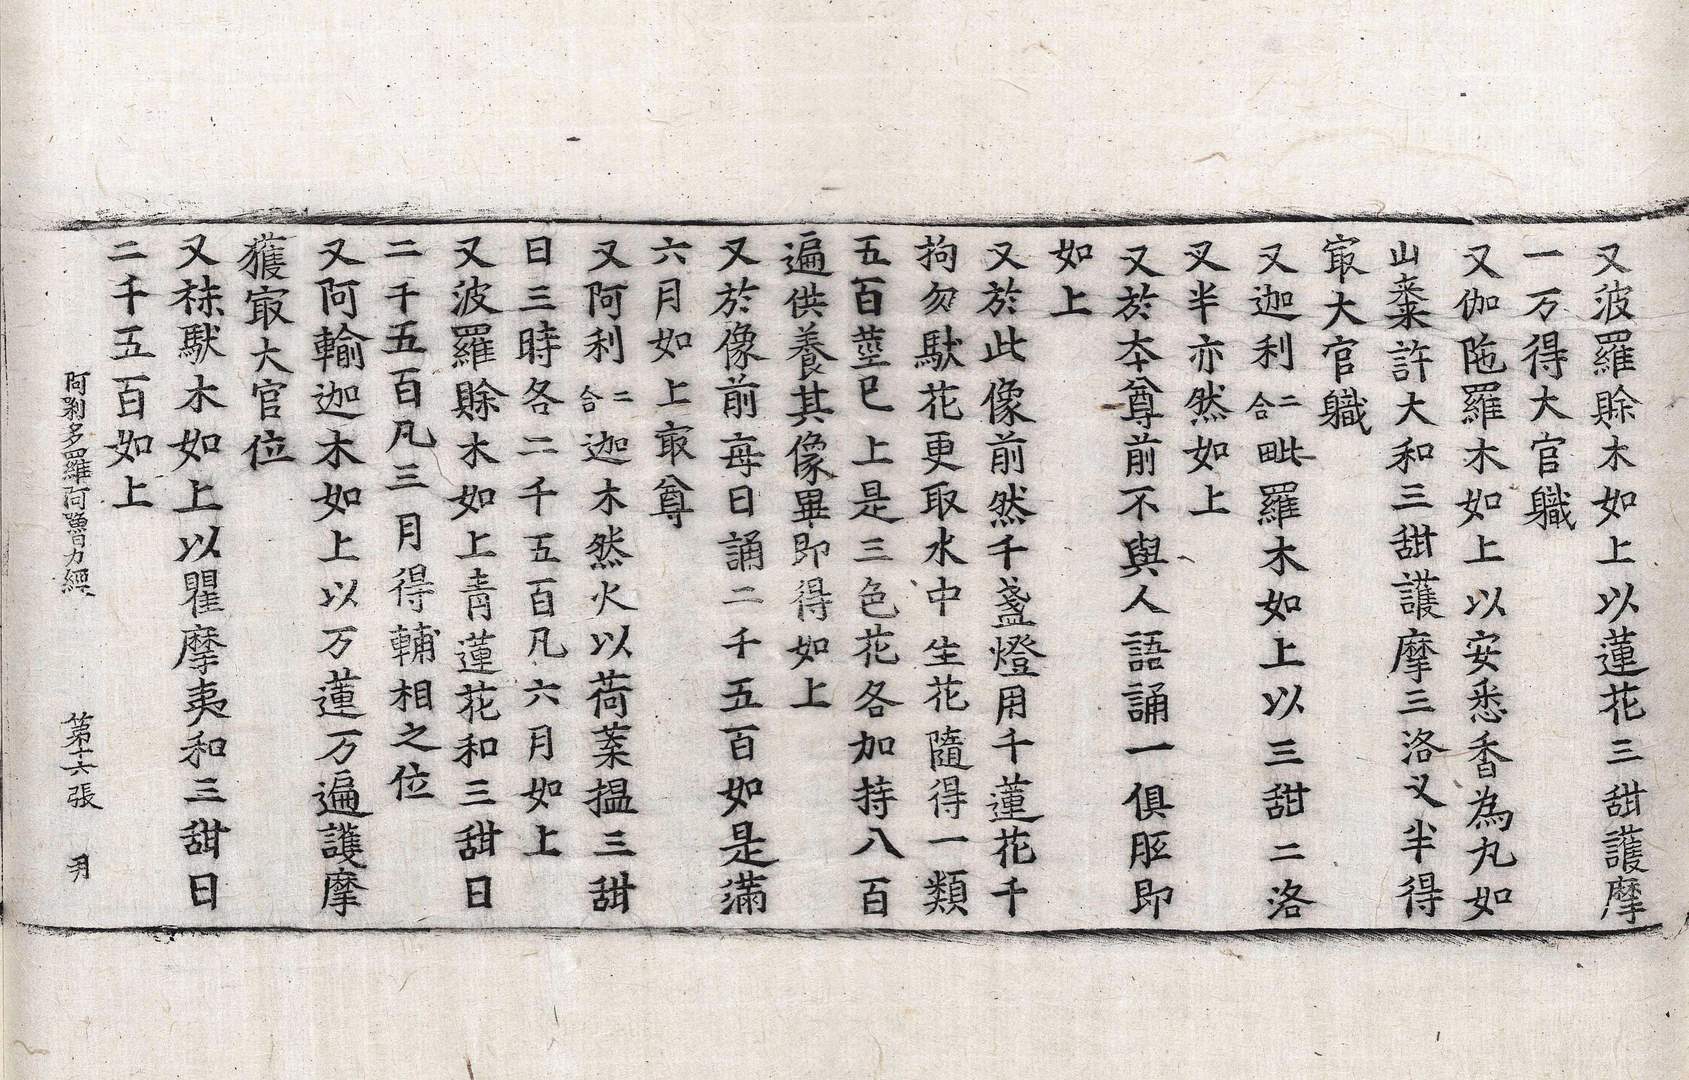 又波羅賒木如上以蓮花三甜護摩
一万得大官職
又伽陁羅木如上以安悉香為丸如
山棗許大和三甜護摩三洛叉半得
㝡大官職
又迦利二合毗羅木如上以三甜二洛
叉半亦然如上
又於夲尊前不與人語誦一俱胝即
如上
又於此像前然千盞燈用千蓮花千
拘勿馱花更取水中生花隨得一類
五百莖已上是三色花各加持八百
遍供養其像畢即得如上
又於像前每日誦二千五百如是滿
六月如上㝡尊
又阿利二合迦木然火以荷葉搵三甜
日三時各二千五百凡六月如上
又波羅賒木如上青蓮花和三甜日
二千五百凡三月得輔相之位
又阿輸迦木如上以万蓮万遍護摩
獲㝡大官位
又祙馱木如上以瞿摩夷和三甜日
二千五百如上
阿剃多羅阿嚕力經 第十六張 羽